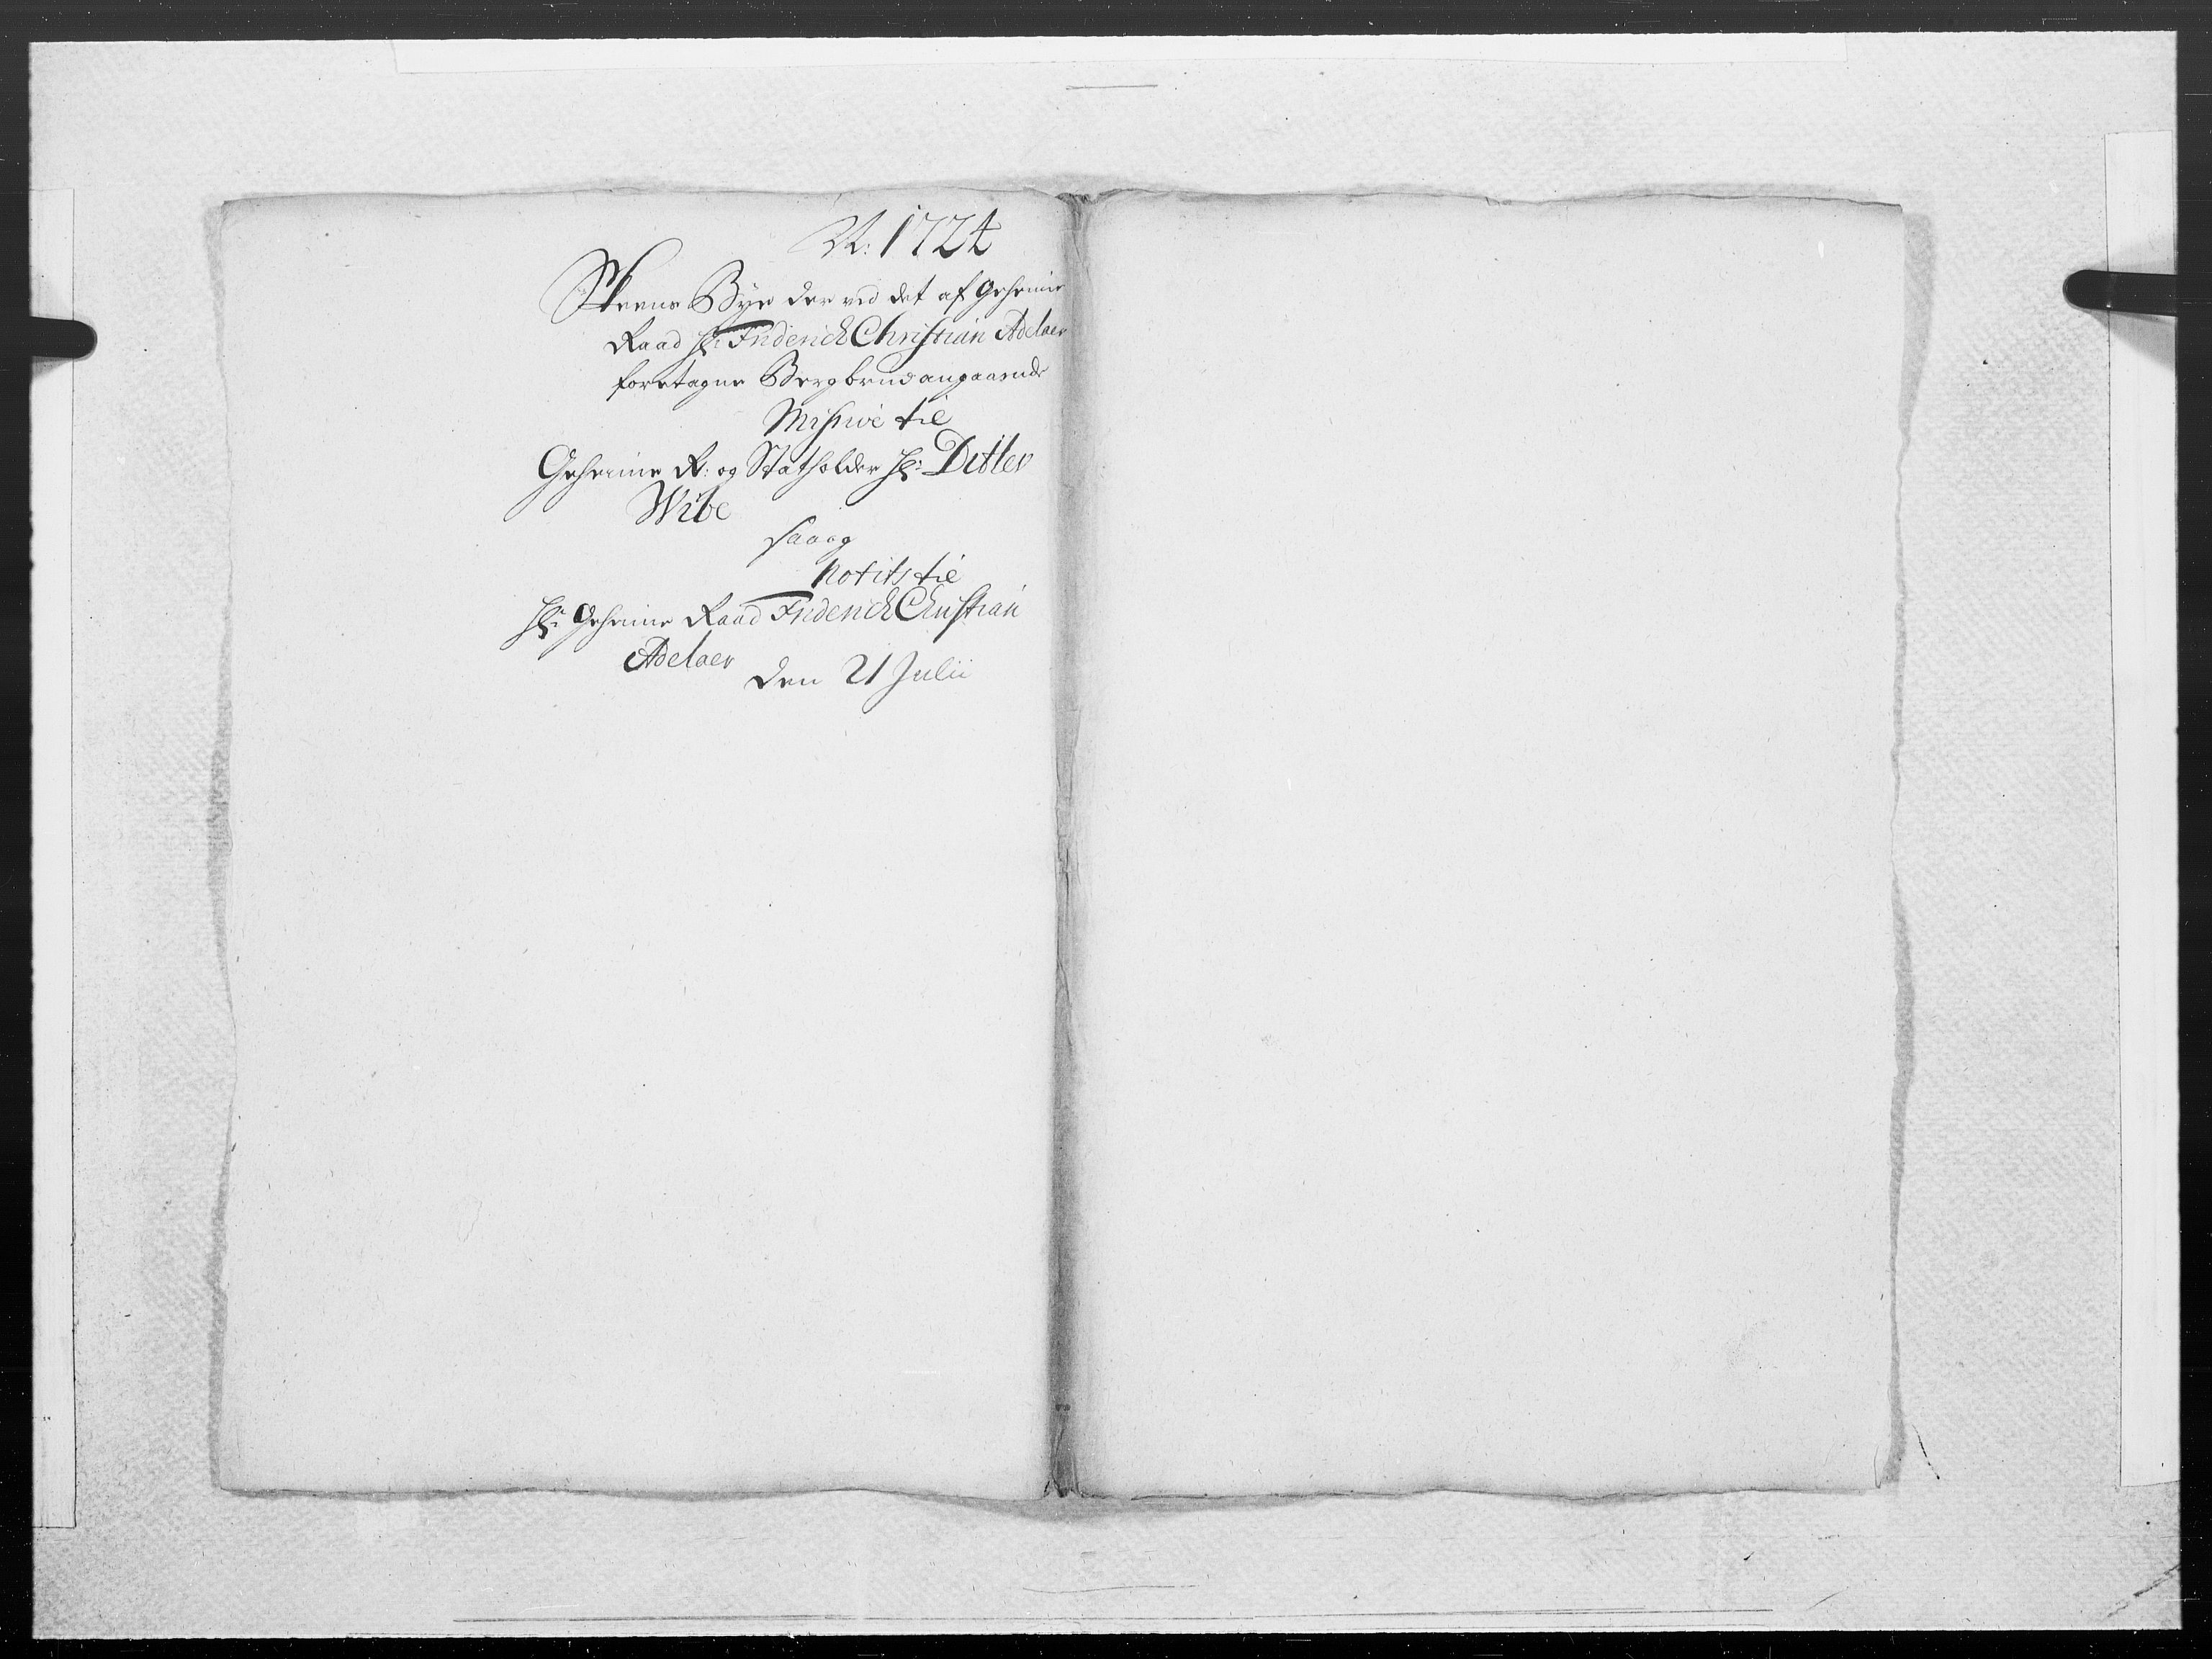 N: 1724
Skeens Bye der ved det af Geheime
Raad Hr: Friderich Christian Adelaer
foretagne Bergbrud angaaende
Missive til
Geheime R: og Statholder Hr: Ditlev
Wibe
saa og
Notits til
Hr: Geheime Raad Friderich Christian
Adelaer
den 21 Julii